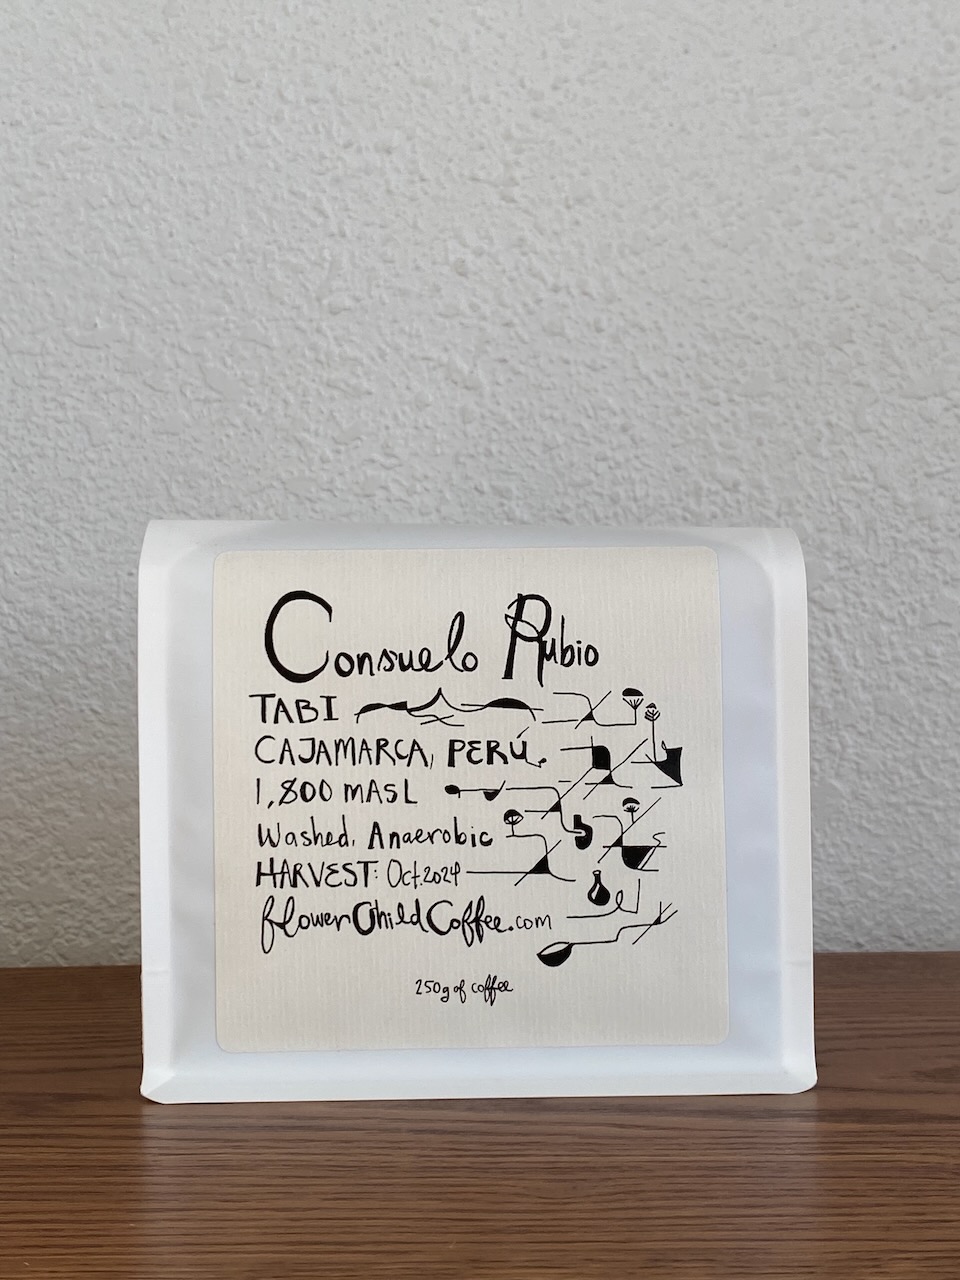 Consuelo Rubio
TABI
CAJAMARCA, PERÚ.
1,800 MASL
Washed, Anaerobic
HARVEST: Oct.2024
flowerChildCoffee.com
250g of coffee